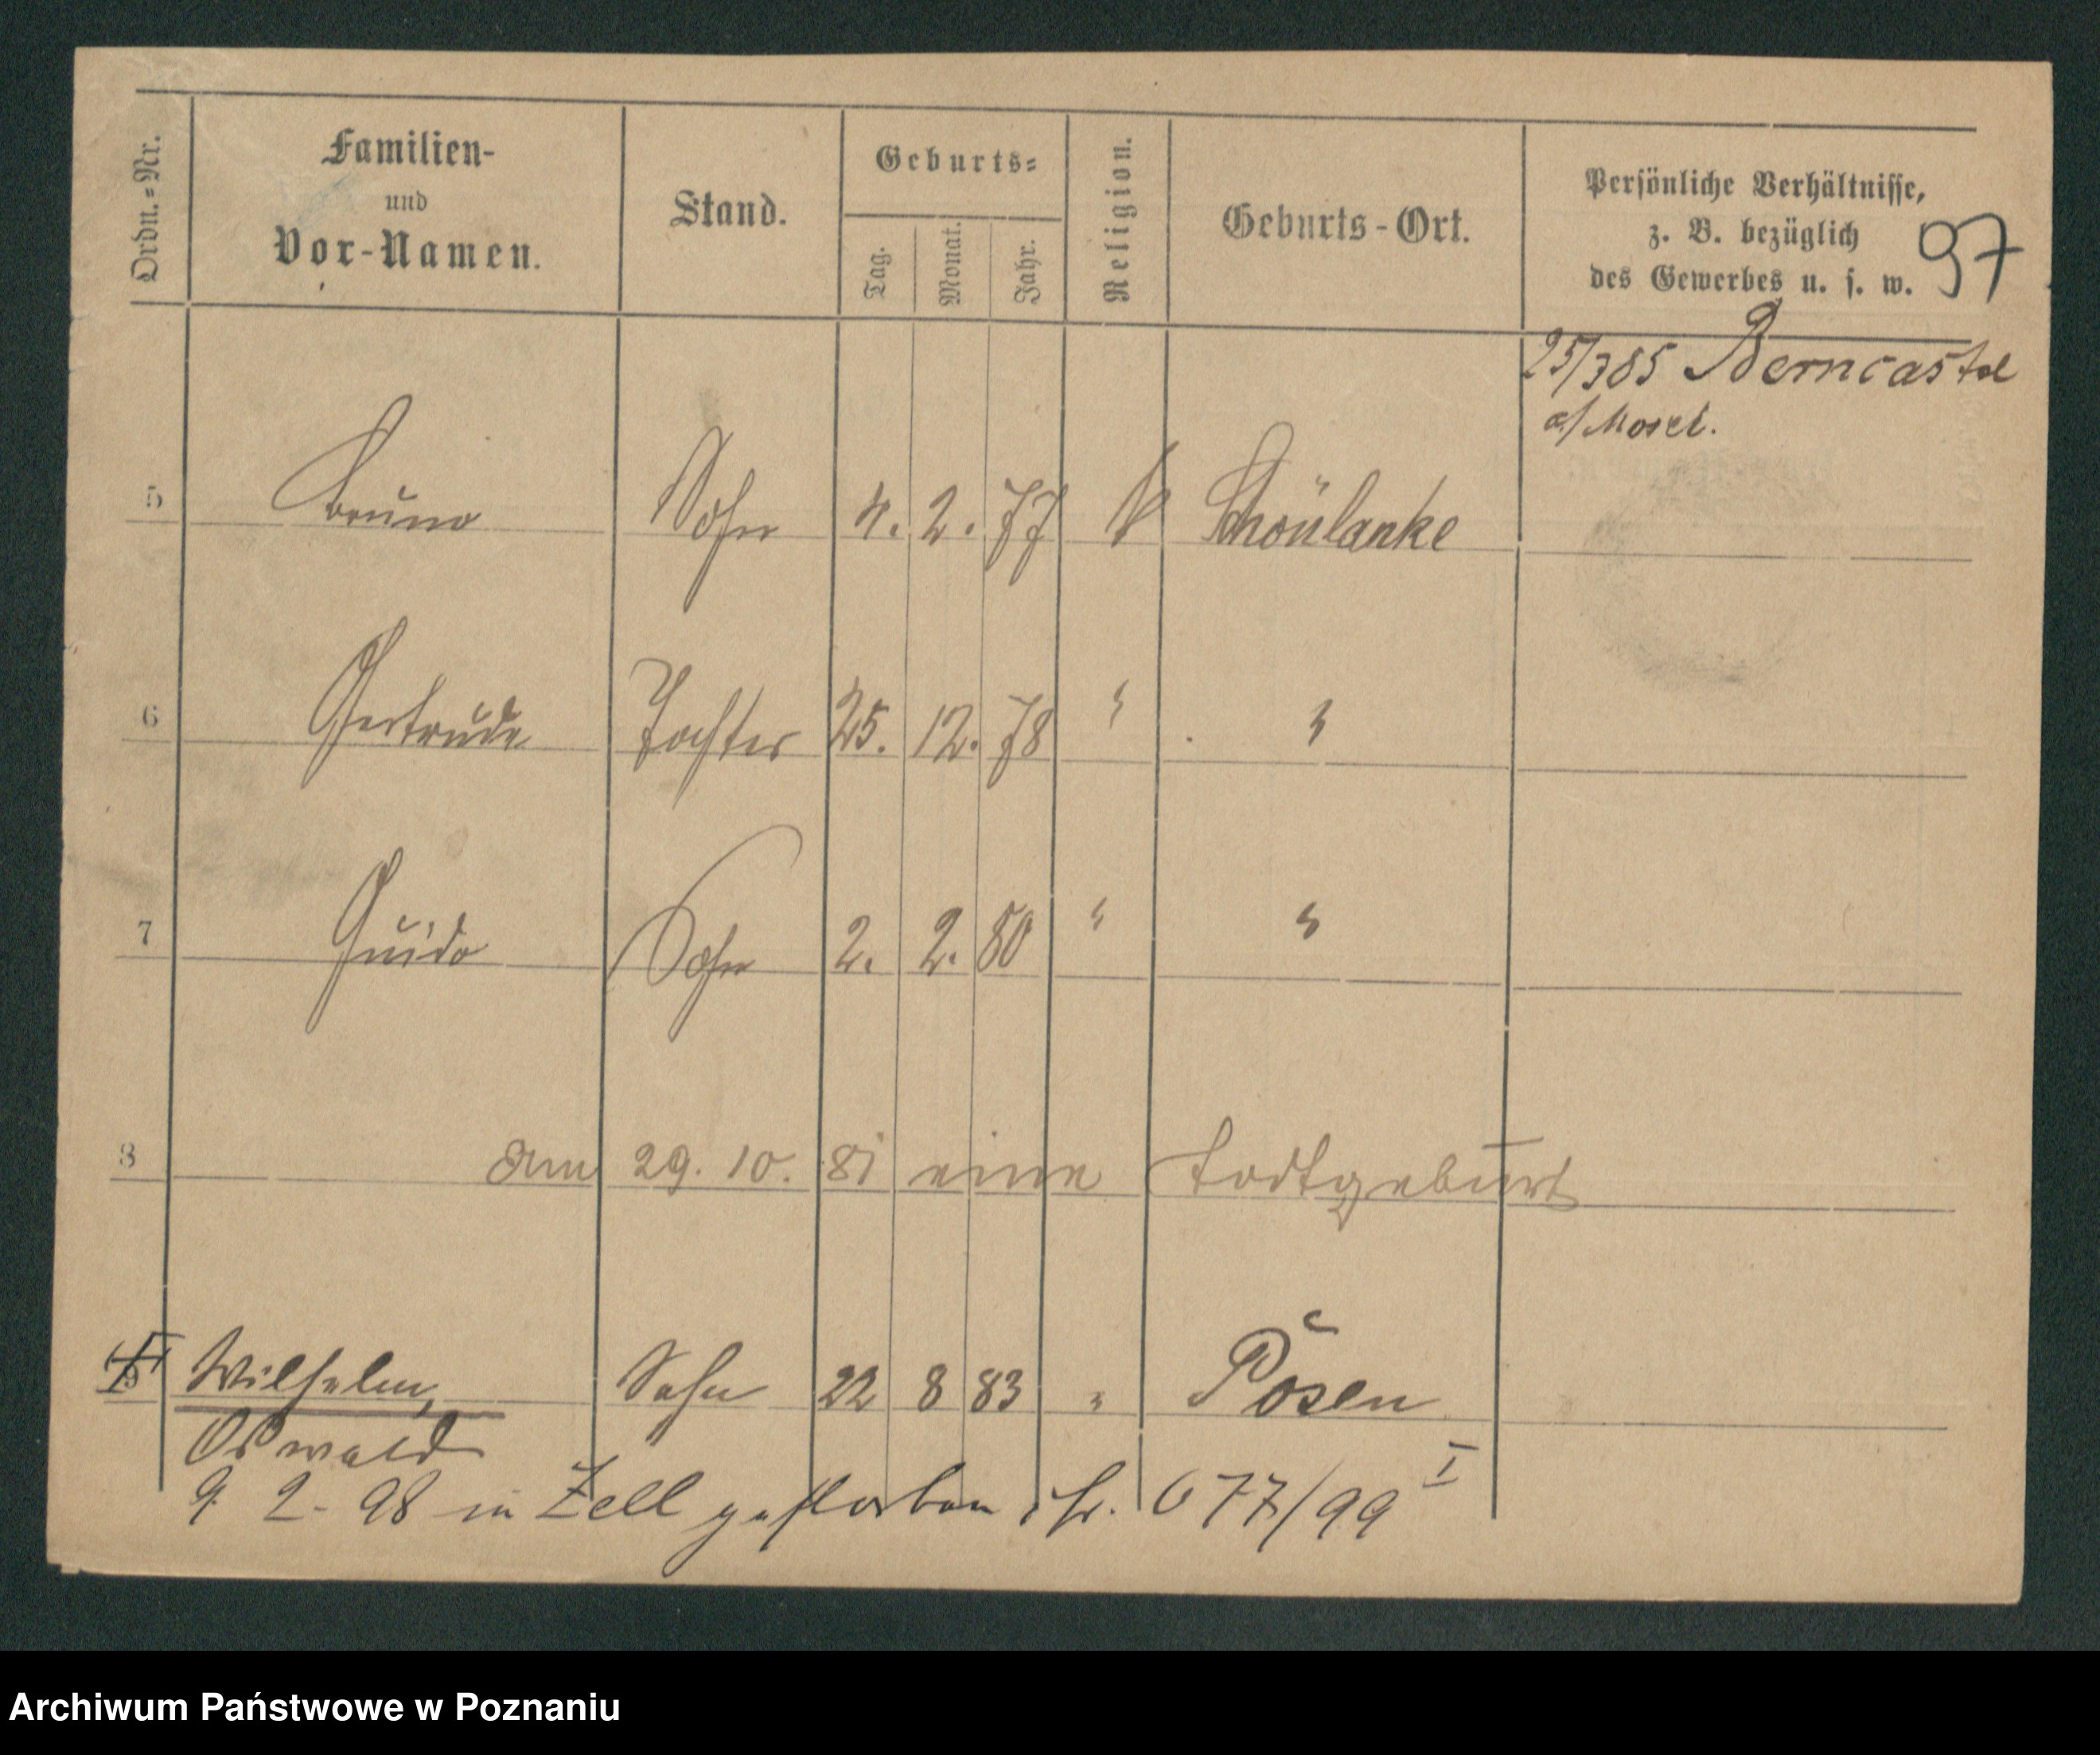 Ordn.-Nr.
Familien-
und
Vor-Namen.
Stand.
Geburts-
Tag.
Monat.
Jahr.
Religion.
Geburts-Ort.
Persönliche Verhältnisse,
z. B. bezüglich
des Gewerbes u. s. w.
97
25/385 Berncastel
a/Mosel.
5 Bruno Sohn 4. 2. 77 Schönlanke
6 Gertrude Tochter 25. 12. 78 " "
7 Guido Sohn 2. 2. 80 " "
8 Am 29. 10. 81 eine Todtgeburt
9 Wilhelm, Sohn 22 8 83 " Posen
Oswald
9. 2. 98 in Zell gestorben, 677/99 I
Archiwum Państwowe w Poznaniu